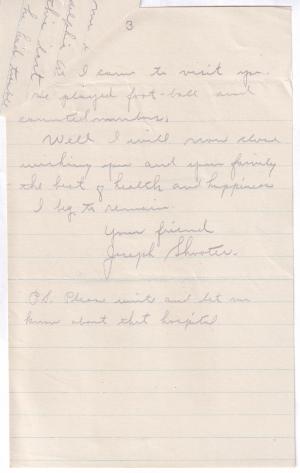 3
I came to visit you.
We played foot-ball and
counted numbers.
Well I will now close
wishing you and your family
the best of health and happiness
I beg to remain.
Your friend
Joseph Shooter.
P.S. Please write and let me
know about that hospital